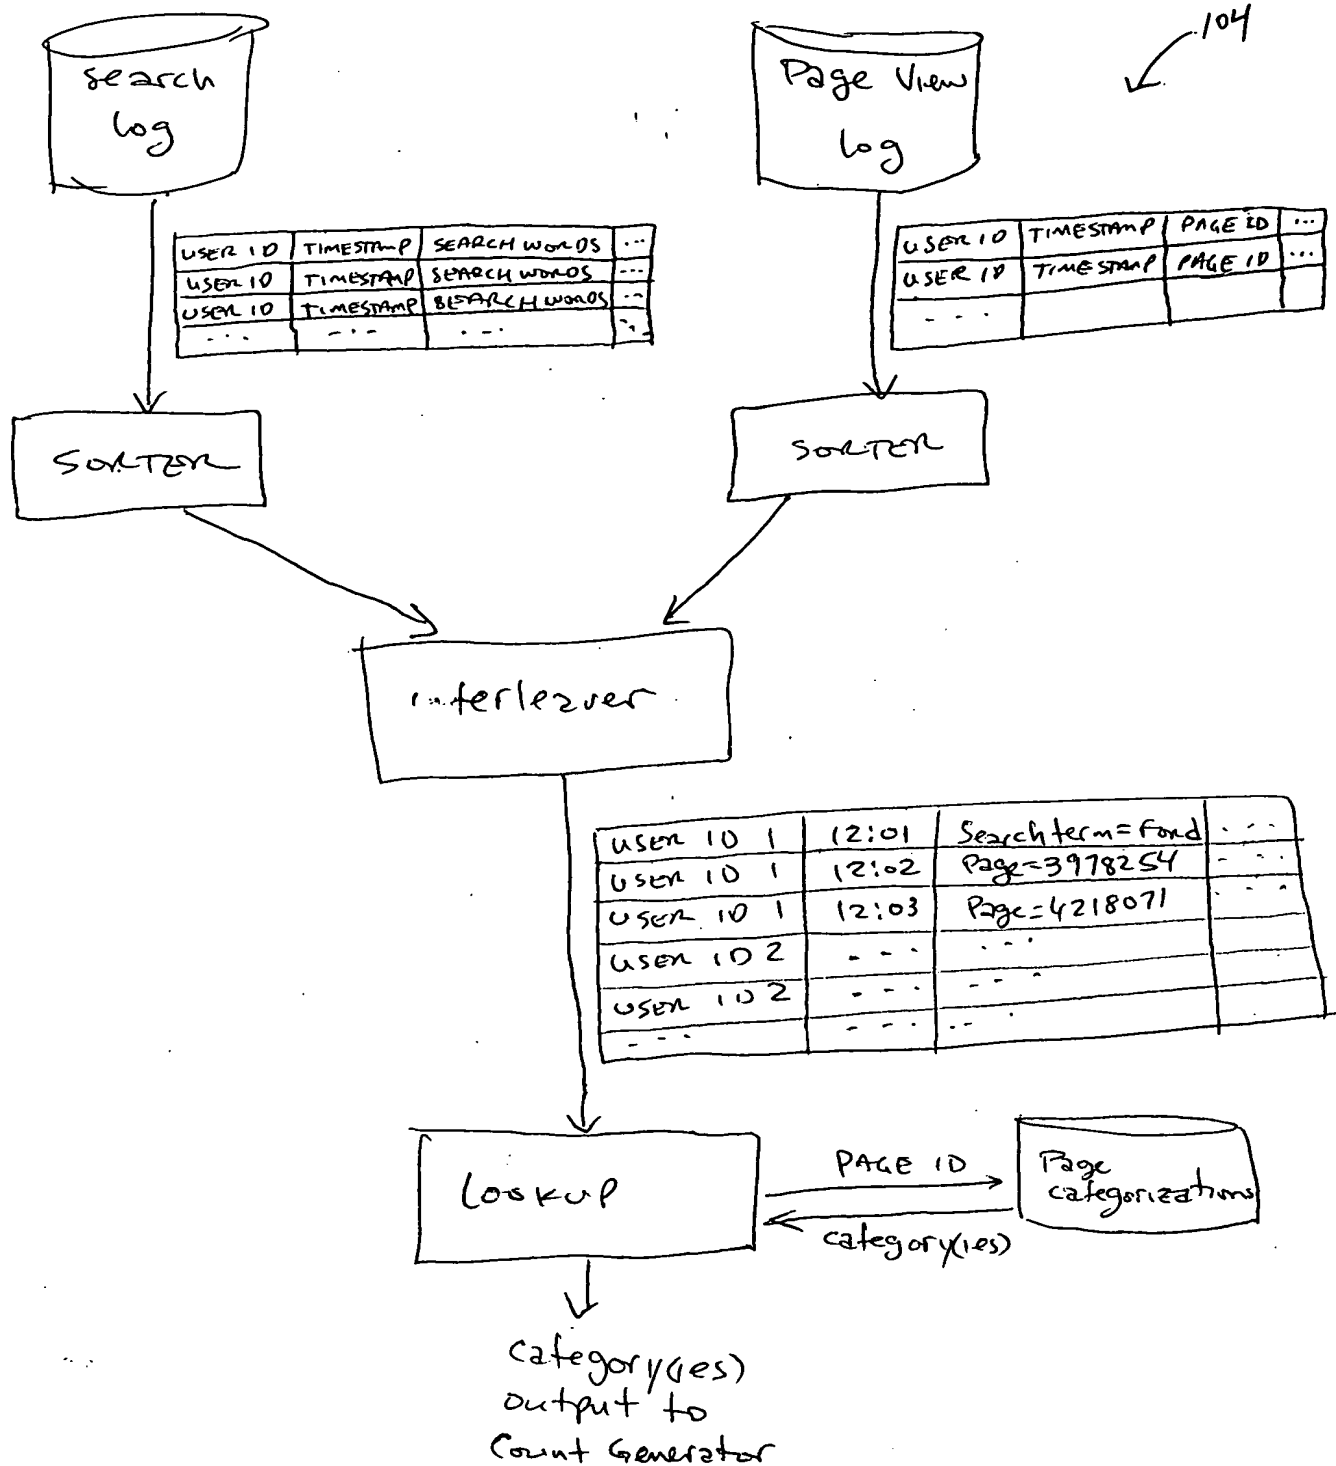 104
Search
log
Page View
log
USER ID TIMESTAMP SEARCH WORDS ...
USER ID TIMESTAMP SEARCH WORDS ...
USER ID TIMESTAMP SEARCH WORDS ...
... ... ... ...
USER ID TIMESTAMP PAGE ID ...
USER ID TIMESTAMP PAGE ID ...
...
SORTER
SORTER
interleaver
USER ID 1 12:01 Search term=Ford ...
USER ID 1 12:02 Page=3978254 ...
USER ID 1 12:03 Page=4218071 ...
USER ID 2 ... ...
USER ID 2 ... ...
... ... ...
Lookup
PAGE ID
category(ies)
Page
categorizations
category(ies)
output to
Count Generator